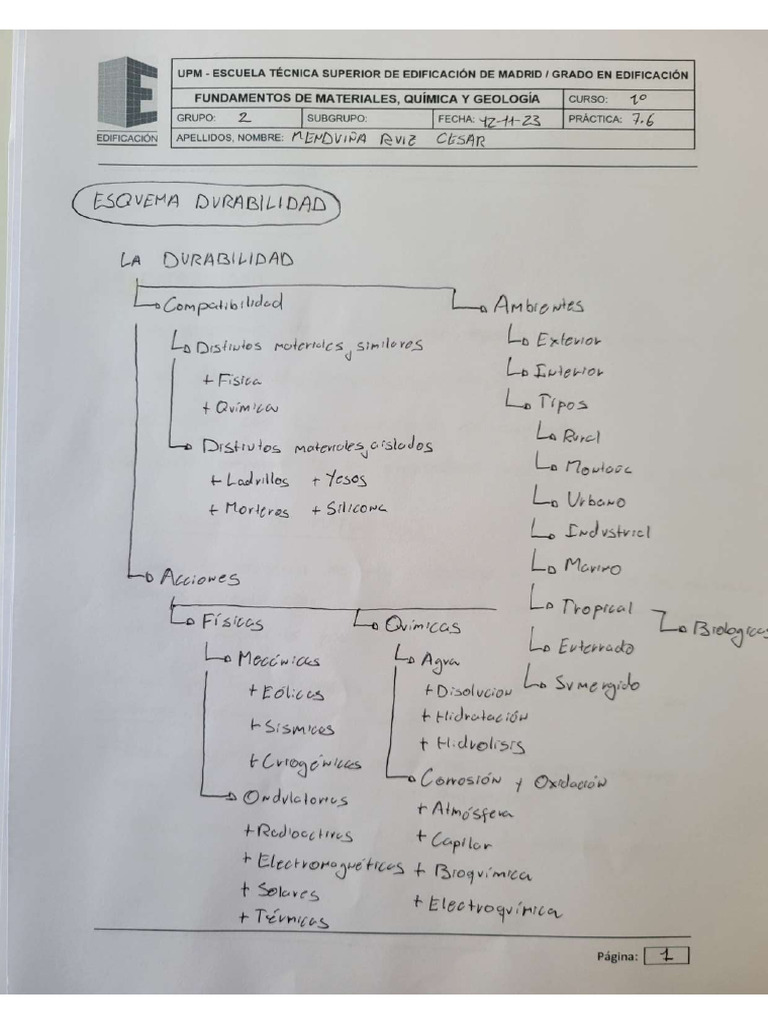 UPM - ESCUELA TÉCNICA SUPERIOR DE EDIFICACIÓN DE MADRID / GRADO EN EDIFICACIÓN
FUNDAMENTOS DE MATERIALES, QUÍMICA Y GEOLOGÍA CURSO: 1º
GRUPO: 2 SUBGRUPO: FECHA: 12-11-23 PRÁCTICA: 7.6
EDIFICACIÓN APELLIDOS, NOMBRE: MENDVIÑA RUIZ CESAR
ESQUEMA DURABILIDAD
LA DURABILIDAD
Compatibilidad
Distintos materiales, similares
+ Física
+ Química
Distintos materiales, aislados
+ Ladrillos + Yesos
+ Morteros + Silicona
Ambientes
Exterior
Interior
Tipos
Rural
Urbano
Industrial
Marino
Tropical
Biologicas
Enterrado
Sumergido
Acciones
Físicas
Mecánicas
+ Eólicas
+ Sísmicas
+ Criogénicas
Ondulatorias
+ Radioactivas
+ Electromagnéticas
+ Solares
+ Térmicas
Químicas
Agua
+ Disolucion
+ Hidratación
+ Hidrolisis
Corrosión y Oxidación
+ Atmósfera
+ Capilar
+ Bioquímica
+ Electroquímica
Página: 1